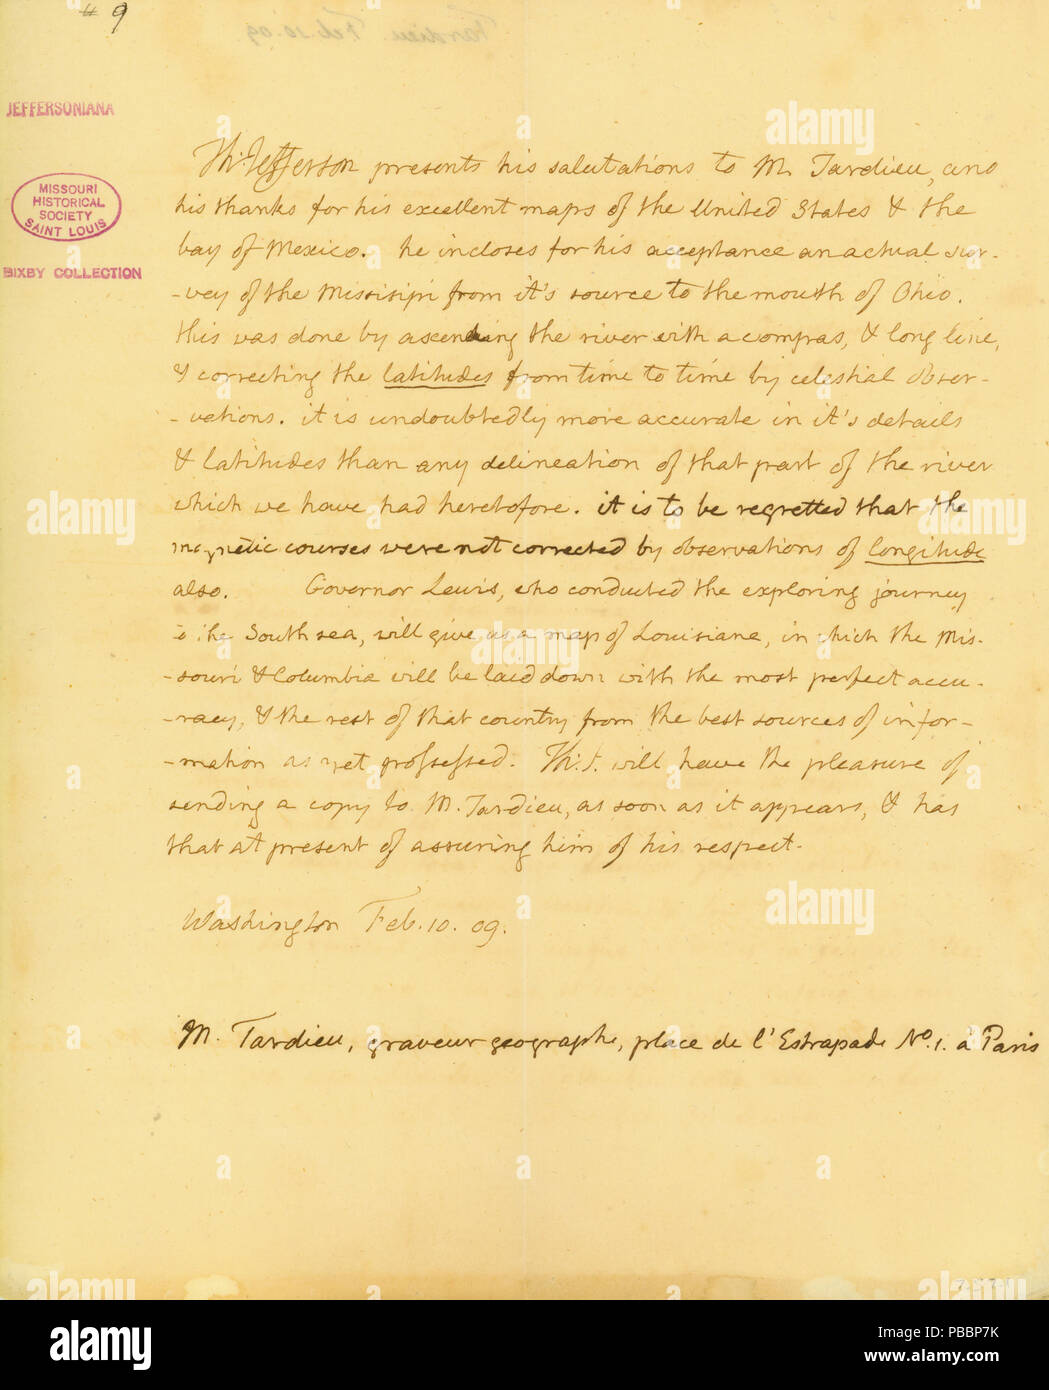 # 9
Tardieu. Feb. 10. 09
JEFFERSONIANA
MISSOURI
HISTORICAL
SOCIETY
SAINT LOUIS
BIXBY COLLECTION
Th: Jefferson presents his salutations to M. Tardieu, and
his thanks for his excellent maps of the United States & the
bay of Mexico. he incloses for his acceptance an actual sur-
-vey of the Missisipi from it's source to the mouth of Ohio.
this was done by ascending the river with a compas, & long line,
& correcting the latitudes from time to time by celestial obser-
-vations. it is undoubtedly more accurate in it's details
& latitudes than any delineation of that part of the river
which we have had heretofore. it is to be regretted that the
magnetic courses were not corrected by observations of longitude
also. Governor Lewis, who conducted the exploring journey
to the South sea, will give us a map of Louisiane, in which the Mis-
-souri & Columbia will be laid down with the most perfect accu-
-racy, & the rest of that country from the best sources of infor-
-mation as yet possessed. Th: J. will have the pleasure of
sending a copy to M. Tardieu, as soon as it appears, & has
that at present of assuring him of his respect.
Washington Feb. 10. 09.
M. Tardieu, graveur geographe, place de l'Estrapade No. 1. à Paris
alamy
Image ID: PBBP7K
www.alamy.com